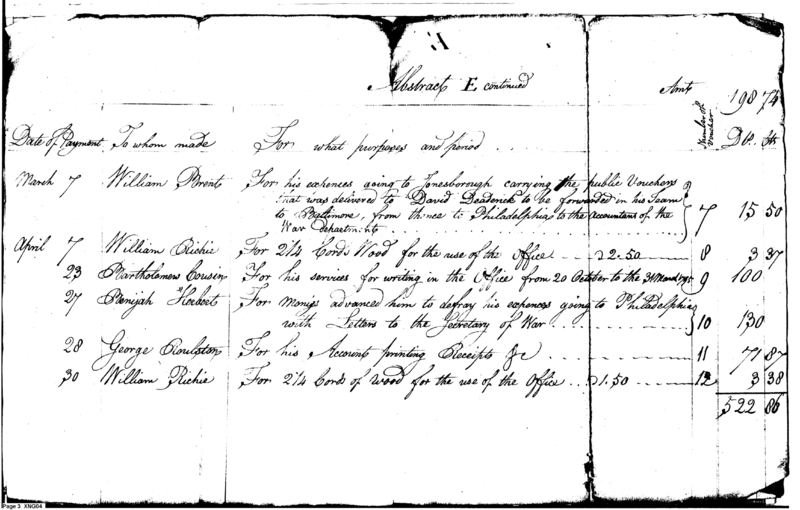 Abstract E, continued
Amt
198 74
Date of Payment To whom made For what purposes and period Number of Voucher Ds. Cts
March 7 William Brent For his expences going to Jonesborough carrying the public Vouchers
that was delivered to David Deaderick to be forwarded in his Team
to Baltimore, from thence to Philadelphia to the Accountant of the 7 15 50
War Department
April 7 William Richie For 2 1/4 Cords Wood for the use of the office 8 3 37
23 Bartholomew Cousin For his services for writing in the Office from 20 October to the 31 March 9 100
27 For Monies advanced him to defray his expences going to Philadelphia
with Letters to the Secretary of War 10 130
28 George Roulston For his Account printing Receipts &c 11 77 87
30 William Richie For 2 1/4 Cords of Wood for the use of the Office 1.50 12 3 38
522 86
Page 3 XNG04